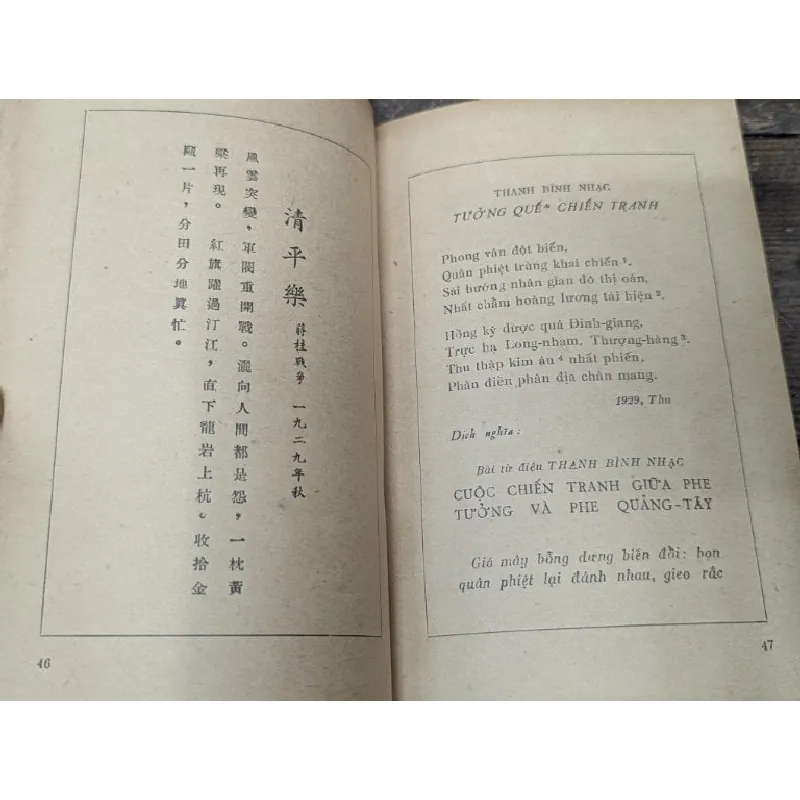 清平樂 蔣桂戰爭 一九二九年秋
風雲突變，軍閥重開戰。灑向人間都是怨，一枕黃
粱再現。 紅旗躍過汀江，直下龍岩上杭。收拾金
甌一片，分田分地眞忙。
46
THANH BÌNH NHẠC
TƯỞNG QUẾ* CHIẾN TRANH
Phong vân đột biến,
Quân phiệt trùng khai chiến ¹.
Sái hướng nhân gian đô thị oán,
Nhất chẩm hoàng lương tái hiện ².
Hồng kỳ dược quá Đinh-giang,
Trực hạ Long-nham, Thượng-hàng ³.
Thu thập kim âu ⁴ nhất phiến,
Phân điền phân địa chân mang.
1929, Thu
Dịch nghĩa :
Bài từ điệu THANH BÌNH NHẠC
CUỘC CHIẾN TRANH GIỮA PHE
TƯỞNG VÀ PHE QUẢNG-TÂY
Gió mây bỗng dưng biến đổi: bọn
quân phiệt lại đánh nhau, gieo rắc
47